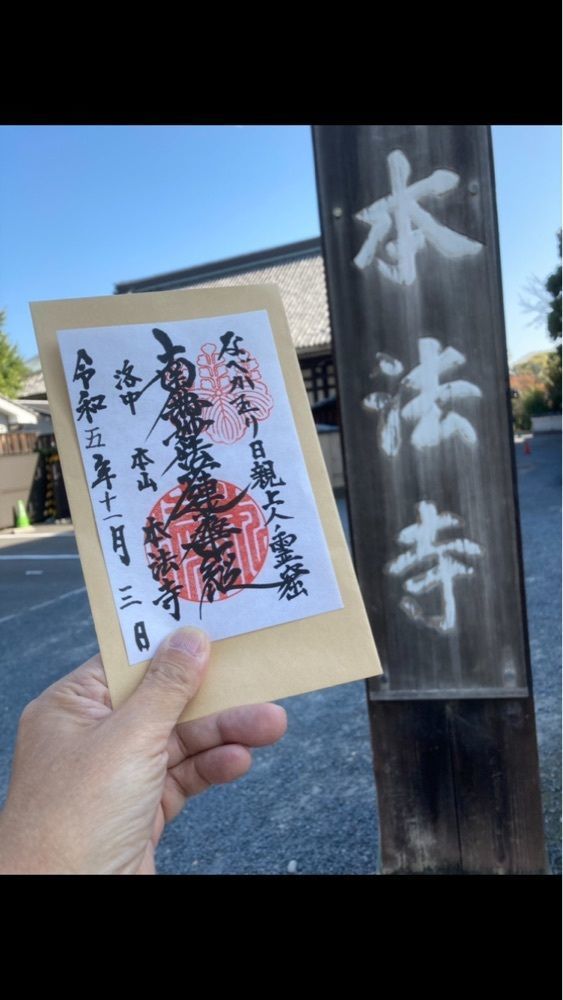 本法寺
なべかむり日親上人霊窟
南無妙法蓮華経
洛中 本山 本法寺
令和五年十一月三日